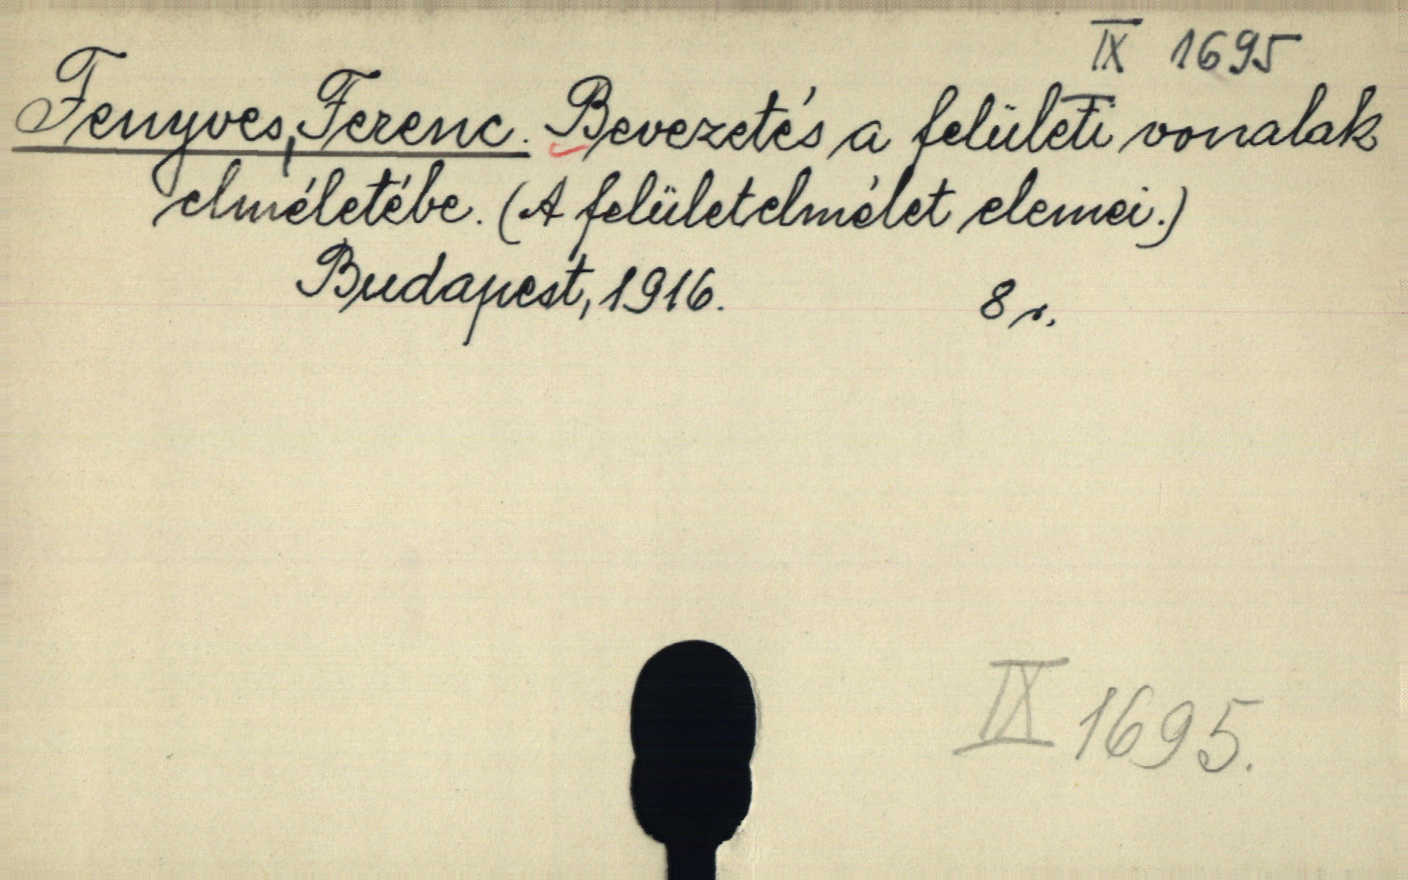 IX 1695
Fenyves, Ferenc. Bevezetés a felületi vonalak
elméletébe. (A felületelmélet elemei.)
Budapest, 1916. 8 r.
IX 1695.